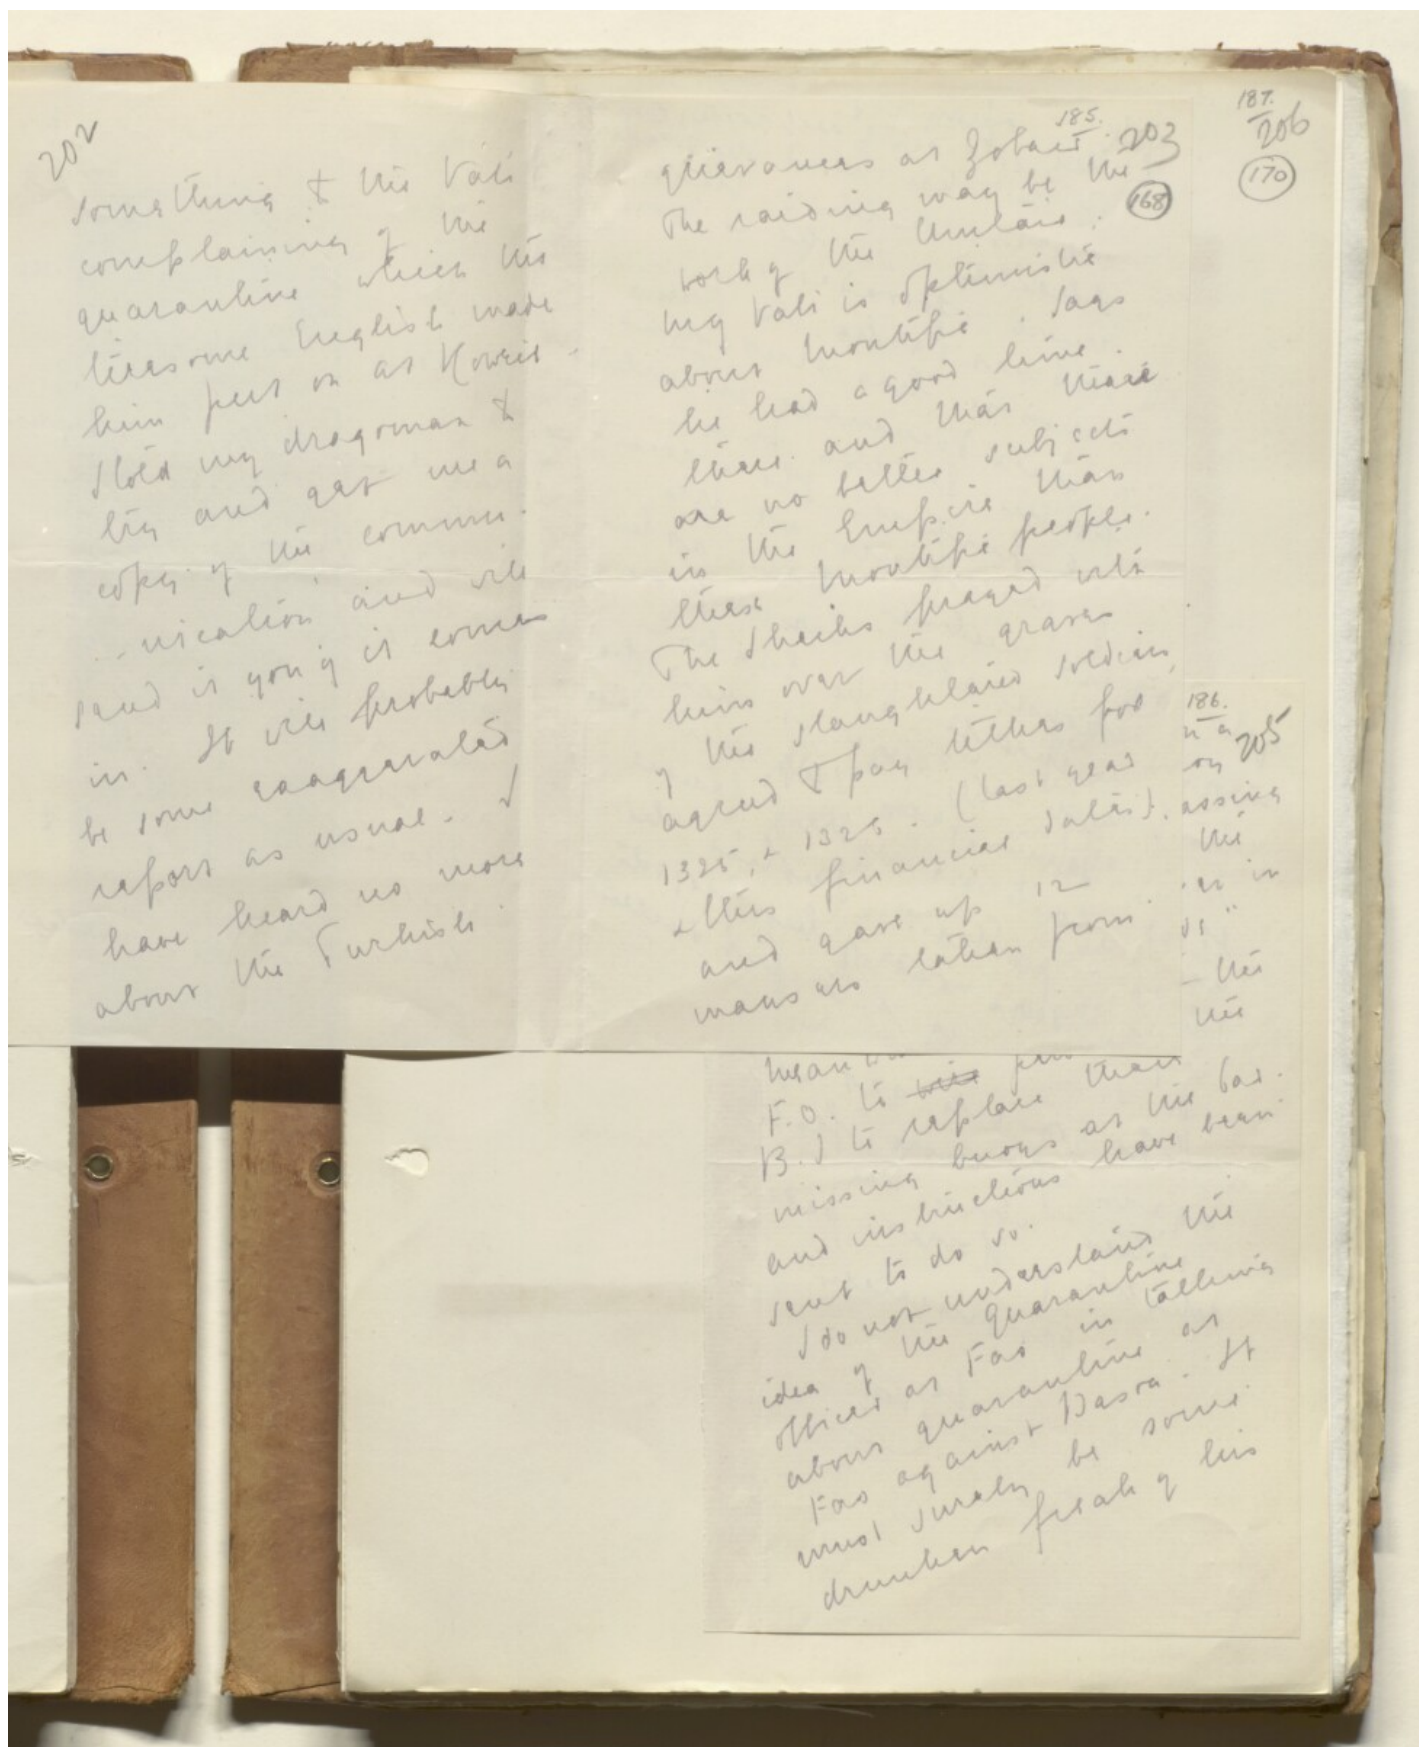 202
something to the Vali
complaining of the
quarantine which the
tiresome English made
him put on at Koweit.
I told my dragoman to
try and get me a
copy of the commu-
nication and will
send it you if it comes
in. It will probably
be some exaggerated
report as usual. I
have heard no more
about the Turkish
185.
203
168
grievances at Zobair.
The raiding may be the
work of the
my Vali is optimistic
about Montifik. Says
he had a good time
there and that there
are no better subjects
in the Empire than
these Montifik people.
The Sheikhs prayed with
him over the graves
of the slaughtered soldiers,
agreed to pay tithes for
1325, & 1326. (last year
& this financial dates).
and gave up 12
mausers taken from
187.
206
170
186.
205
on
assing
the
in
the
the
F.O. to
B.I to replace their
missing buoys at the bar.
and instructions have been
sent to do so.
I do not understand the
idea of the Quarantine
officer at Fao in talking
about quarantine at
Fao against Basra. It
must surely be some
drunken freak of his